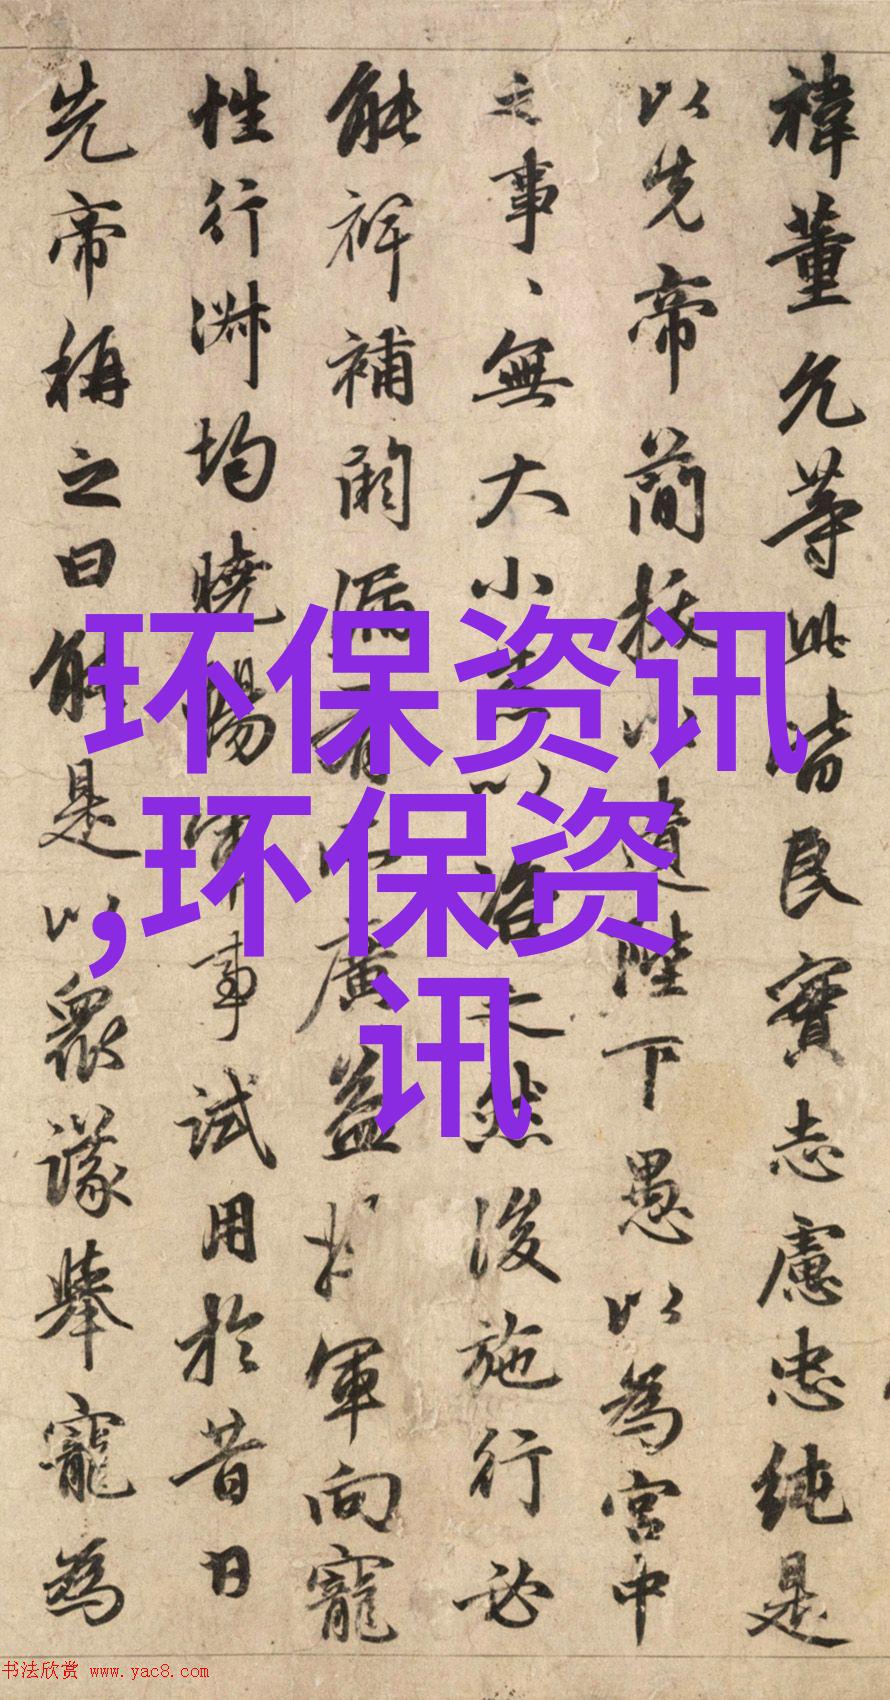 禕董允等此皆良實志慮忠純是
以先帝簡拔以遺陛下愚以為宮中
之事事無大小悉以咨之然後施行必
能裨補闕漏有所廣益將軍向寵
性行淑均曉暢軍事試用於昔日
先帝稱之曰能是以眾議舉寵為
环保资讯
,环保资
讯
书法欣赏 www.yac8.com